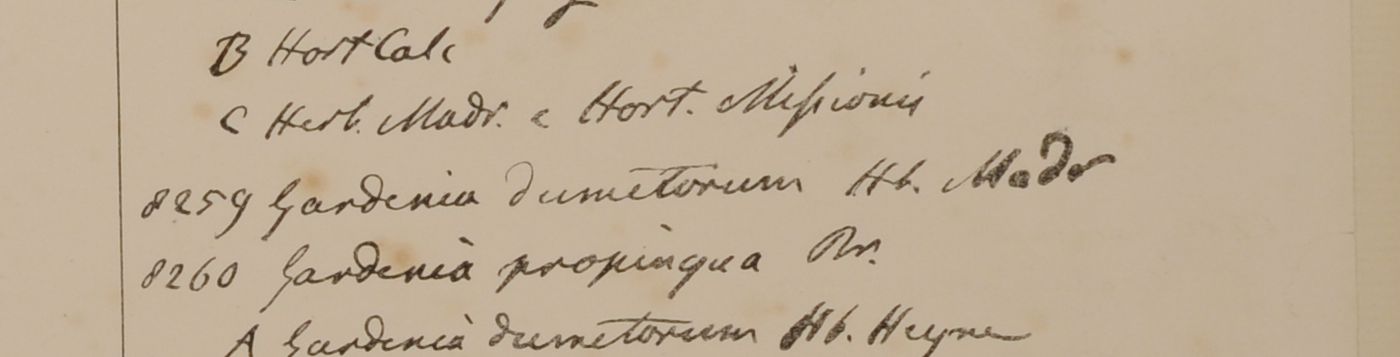 B Hort Calc
C Herb. Madr. e Hort. Missionis
8259 Gardenia dumetorum Hb. Madr
8260 Gardenia propinqua Br.
A Gardenia dumetorum Hb. Heyne